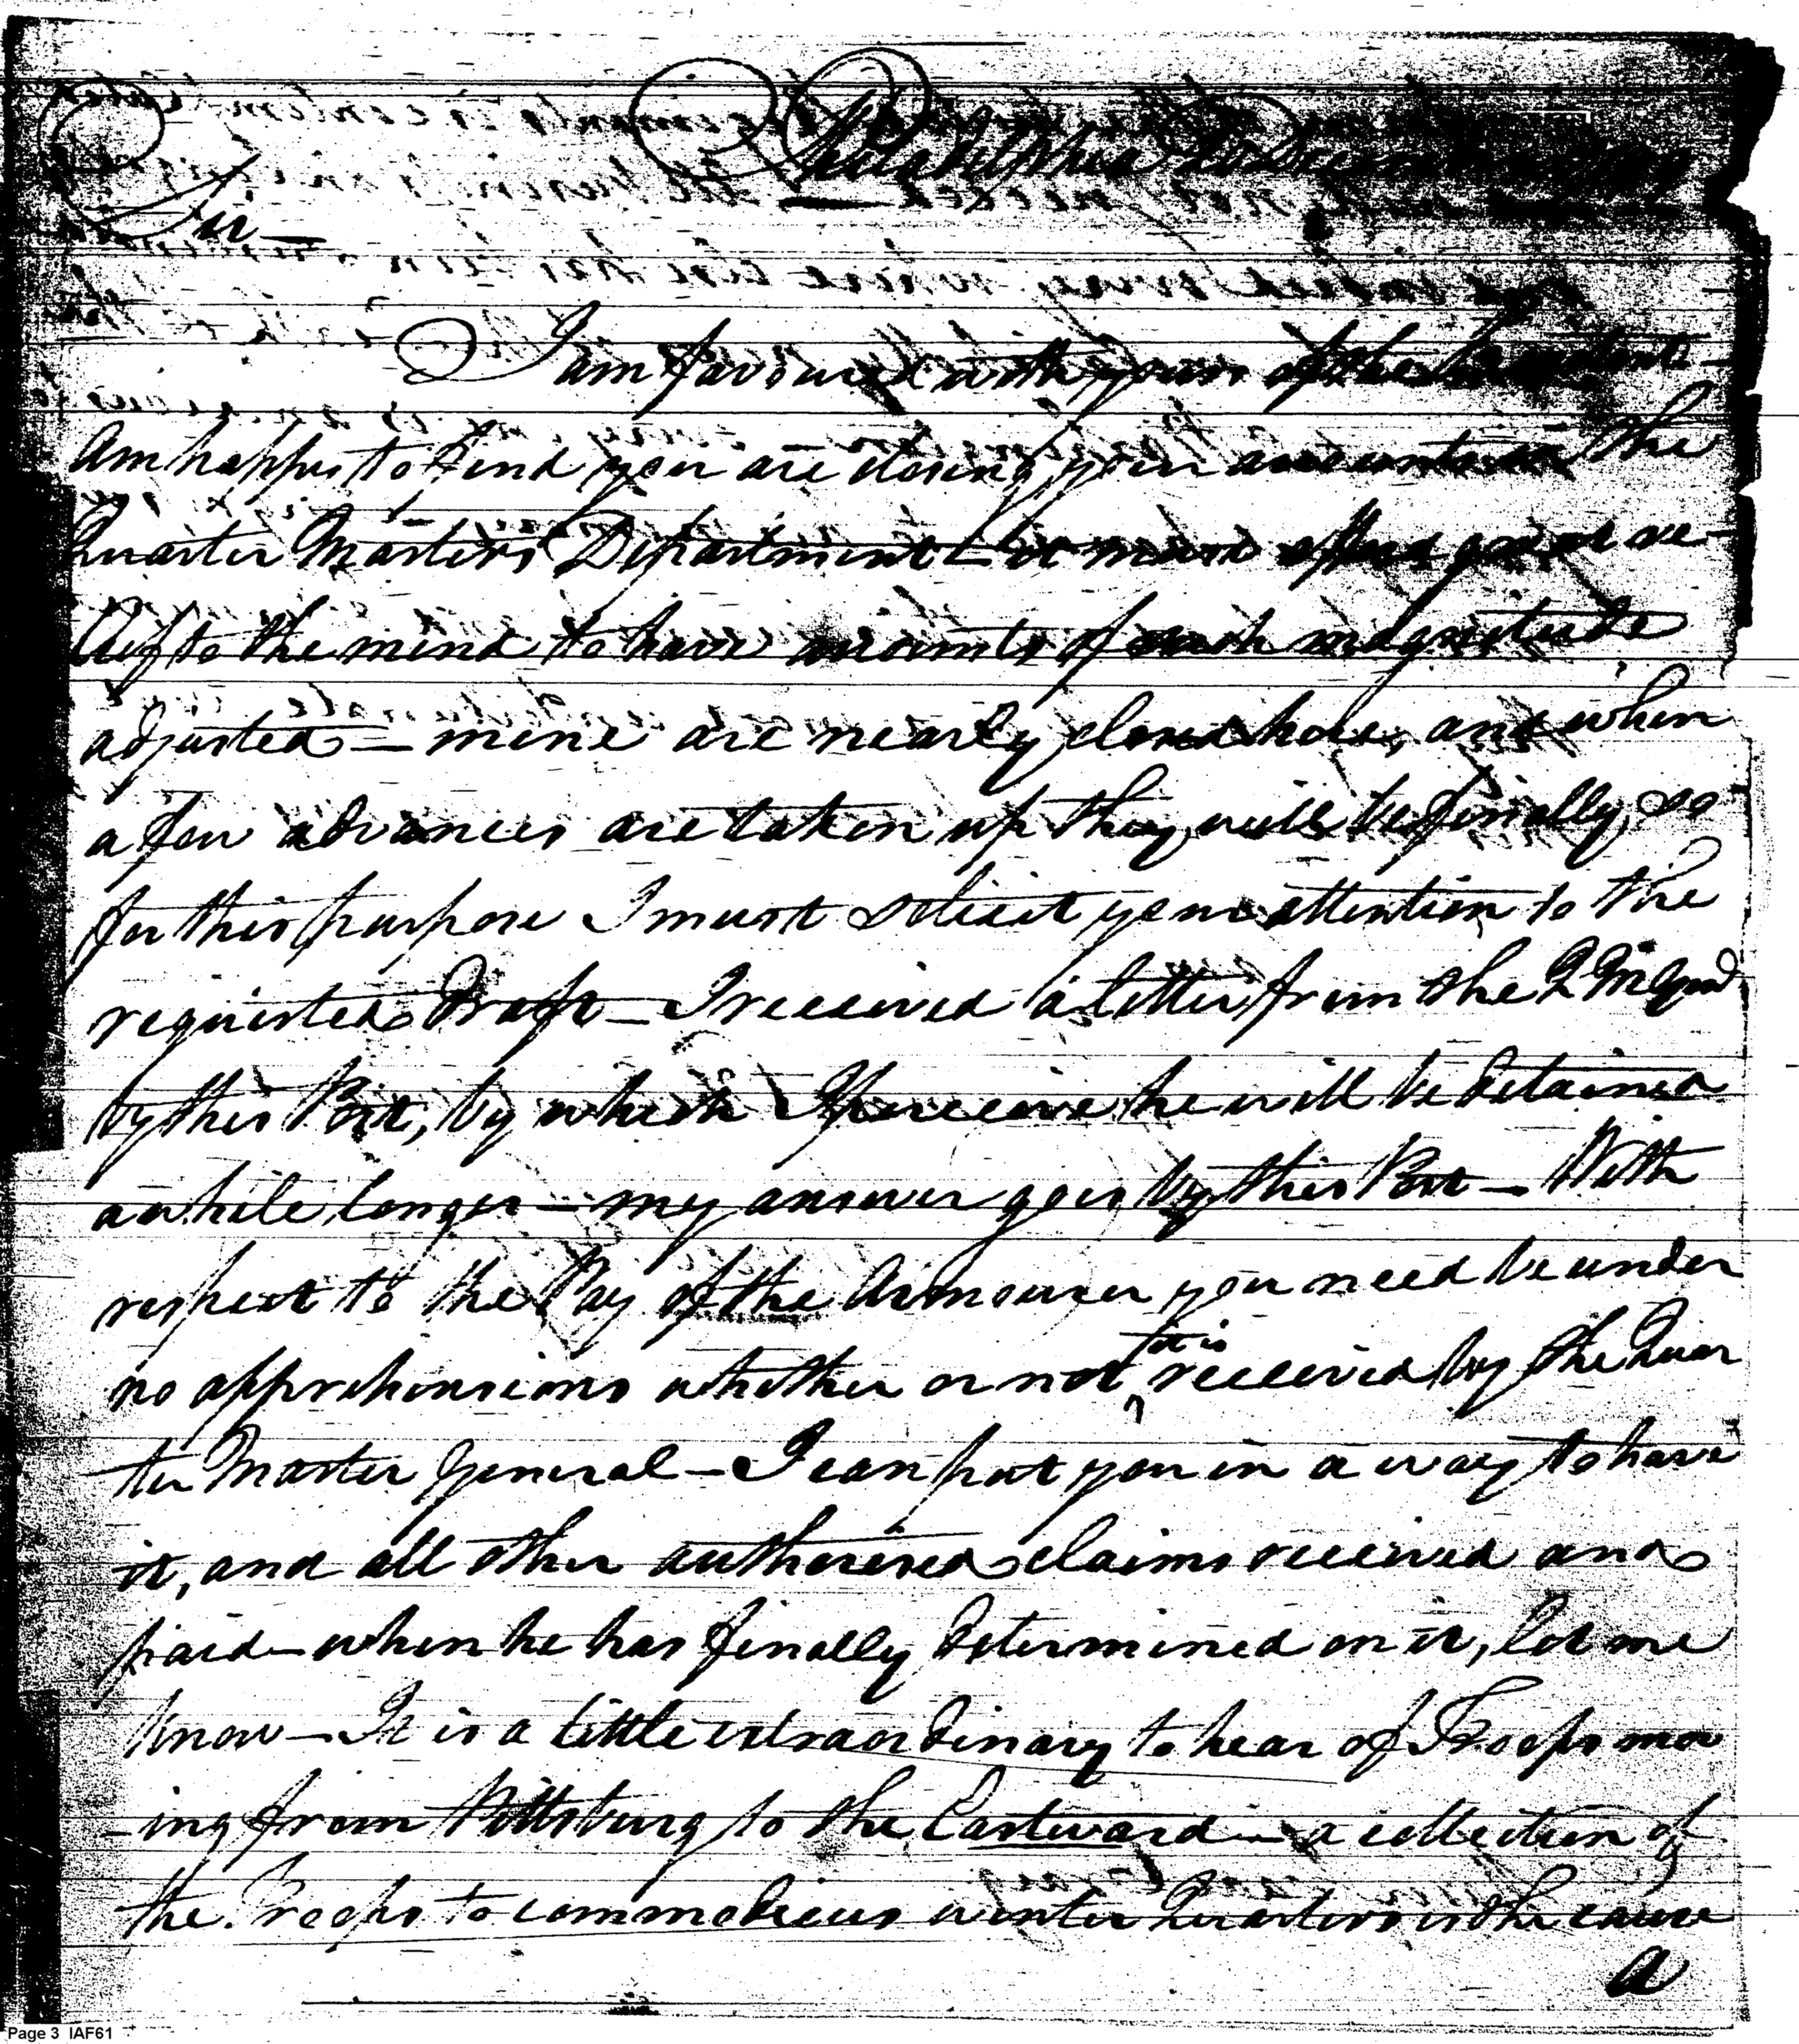 Philadelphia
Sir —
I am favoured with yours of the
Am happy to find you are closing your accounts in the
Quarter Masters Department — it must afford great re-
lief to the mind to have accounts of such magnitude
adjusted — mine are nearly closed here, and when
a few advances are taken up they will be finally so
for this purpose I must solicit your attention to the
requested Draft — I received a letter from the
by this Post, by which I perceive he will be detained
awhile longer — my answer goes by this Post — With
respect to the Pay of the Armourer you need be under
no apprehensions whether or not it is received by the Quar
ter Master General — I can put you in a way to have
it, and all other authorised claims received and
paid — when he has finally determined on it, let me
know — It is a little extraordinary to hear of Troops mov
-ing from Pittsburg to the Eastward — a collection of
the Troops to commodious winter Quarters is the cause
a
Page 3 IAF61